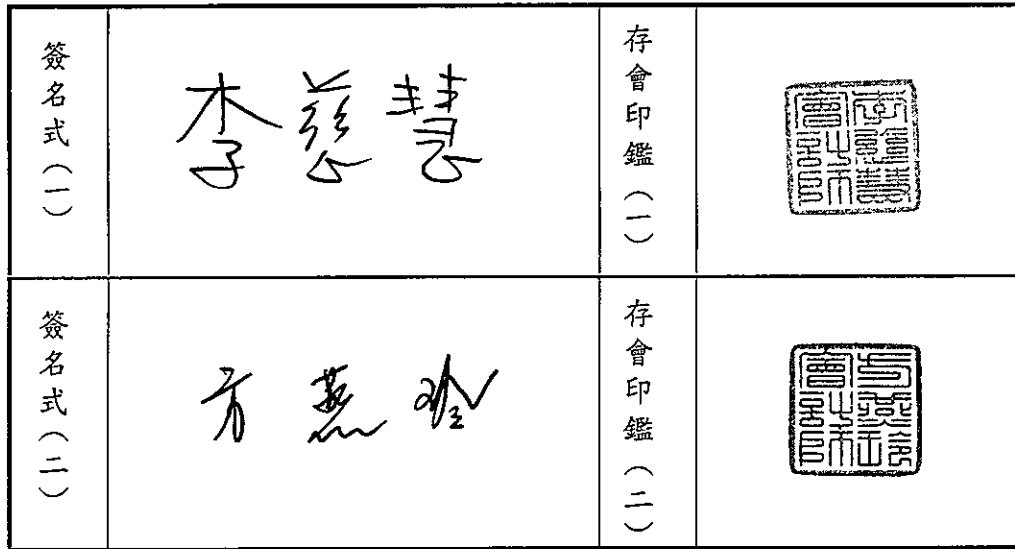 簽名式(一)
李慈慧
存會印鑑(一)
李慈慧
會計師
簽名式(二)
方燕玲
存會印鑑(二)
方燕玲
會計師